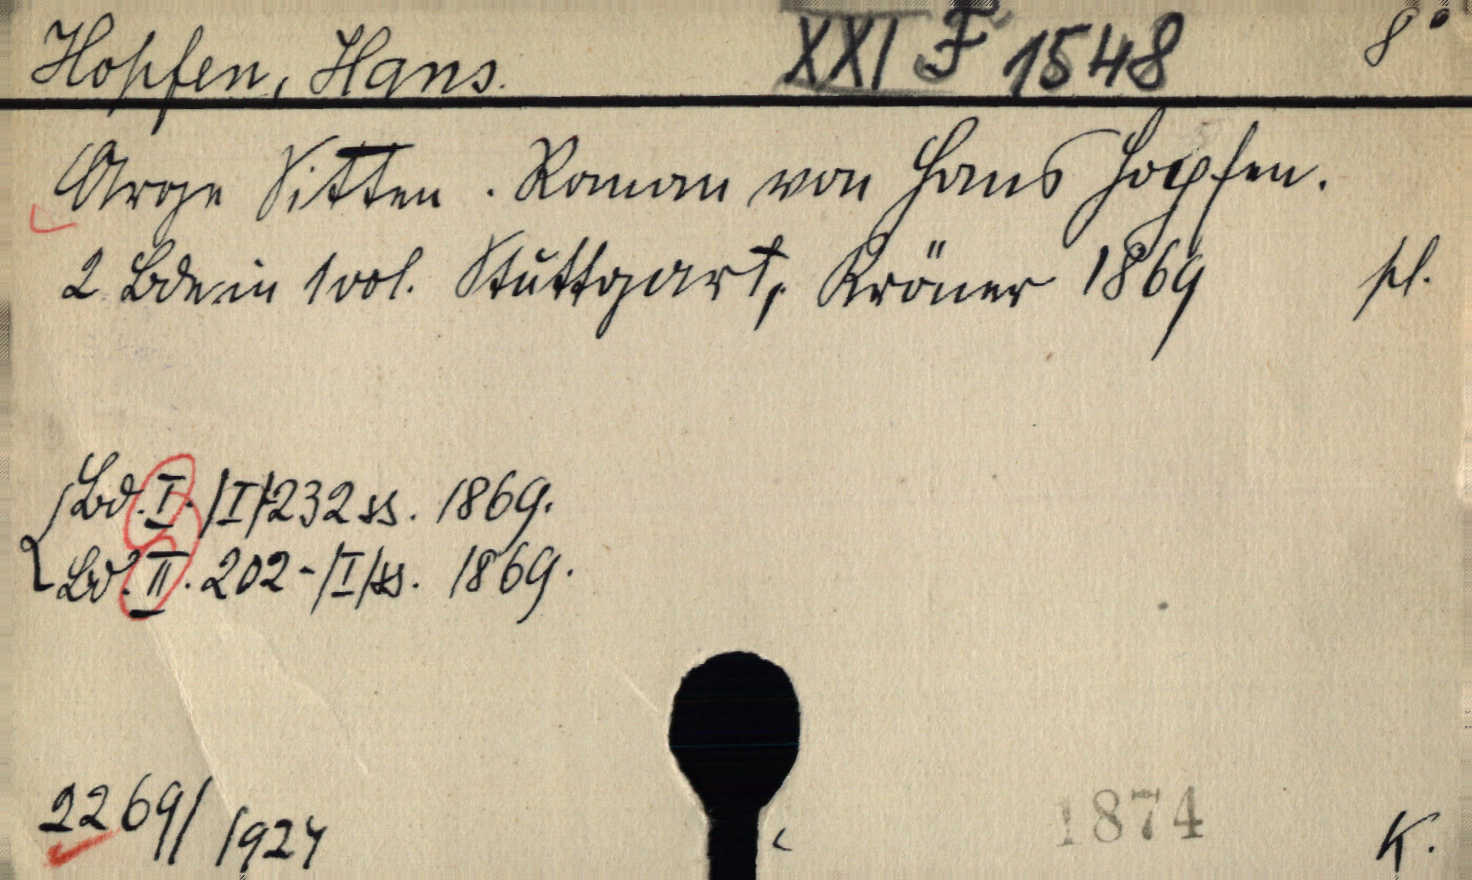 Hopfen, Hans. XXI F 1548 8°
Arge Sitten. Roman von Hans Hopfen.
2 Bde in 1 vol. Stuttgart, Kröner 1869 pl.
Bd. I. /I/+232 ss. 1869.
Bd. II. 202-/I/ss. 1869.
2269/1927
1874 K.